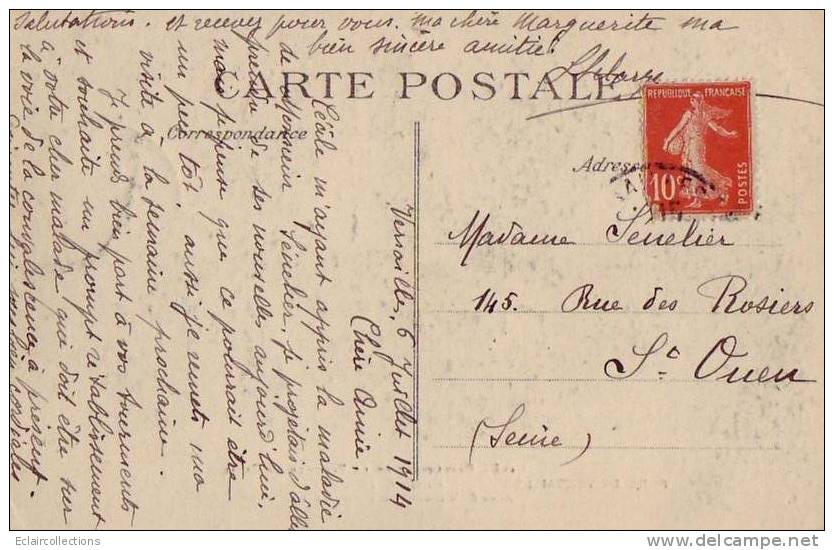 CARTE POSTALE
Correspondance
Adresse
RÉPUBLIQUE FRANÇAISE
10c
POSTES
Versailles, 6 Juillet 1914
Chère Amie,
Cécile m'ayant appris la maladie
de Monsieur Sénelier, je projetais d'aller
prendre de ses nouvelles aujourd'hui.
mais je pense que ce pourrait être
un peu tôt, aussi je remets ma
visite à la semaine prochaine.
Je prends bien part à vos tourments
et souhaite un prompt rétablissement
à votre cher malade qui doit être sur
la voie de la convalescence à présent.
cordiales
salutations. et recevez pour vous. ma chère Marguerite ma
bien sincère amitié.
Madame Senelier
145. Rue des Rosiers
St Ouen
(Seine)
Eclaircollections
www.delcampe.net